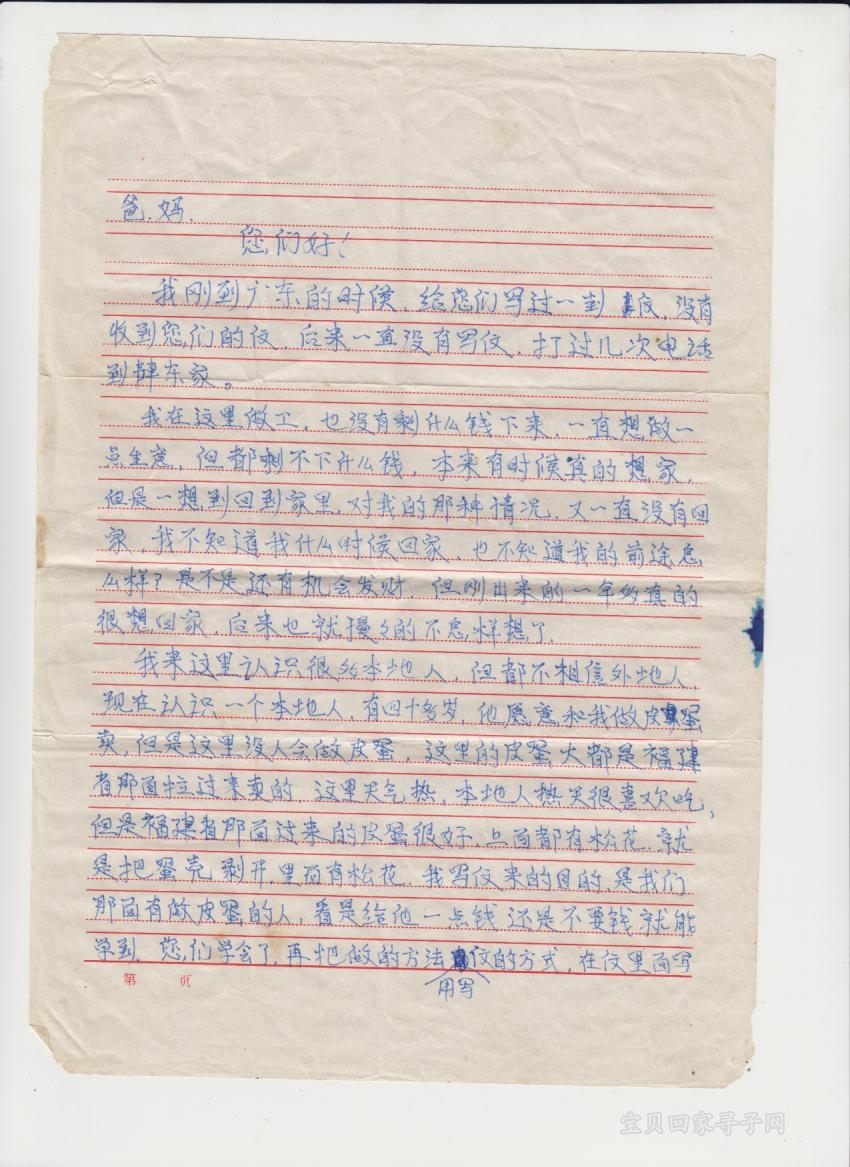 爸.妈.
您们好!
我刚到广东的时候.给您们写过一封信,没有
收到您们的信.后来一直没有写信.打过几次电话
到肆东家。
我在这里做工,也没有剩什么钱下来.一直想做一
点生意,但都剩不下什么钱,本来有时候真的想家,
但是一想到回到家里,对我的那种情况,又一直没有回
家,我不知道我什么时候回家,也不知道我的前途怎
么样?是不是还有机会发财.但刚出来的一年多真的
很想回家,后来也就慢々的不怎样想了.
我来这里认识很多本地人,但都不相信外地人,
现在认识一个本地人,有四十多岁,他愿意和我做皮蛋
卖,但是这里没人会做皮蛋,这里的皮蛋大都是福建
省那面拉过来卖的,这里天气热,本地人热天很喜欢吃,
但是福建省那面过来的皮蛋很好.上面都有松花.就
是把蛋壳剥开.里面有松花.我写信来的目的,是我们
那面有做皮蛋的人,看是给他一点钱还是不要钱就能
学到.您们学会了,再把做的方法用写信的方式,在信里面写
第 页
宝贝回家寻子网